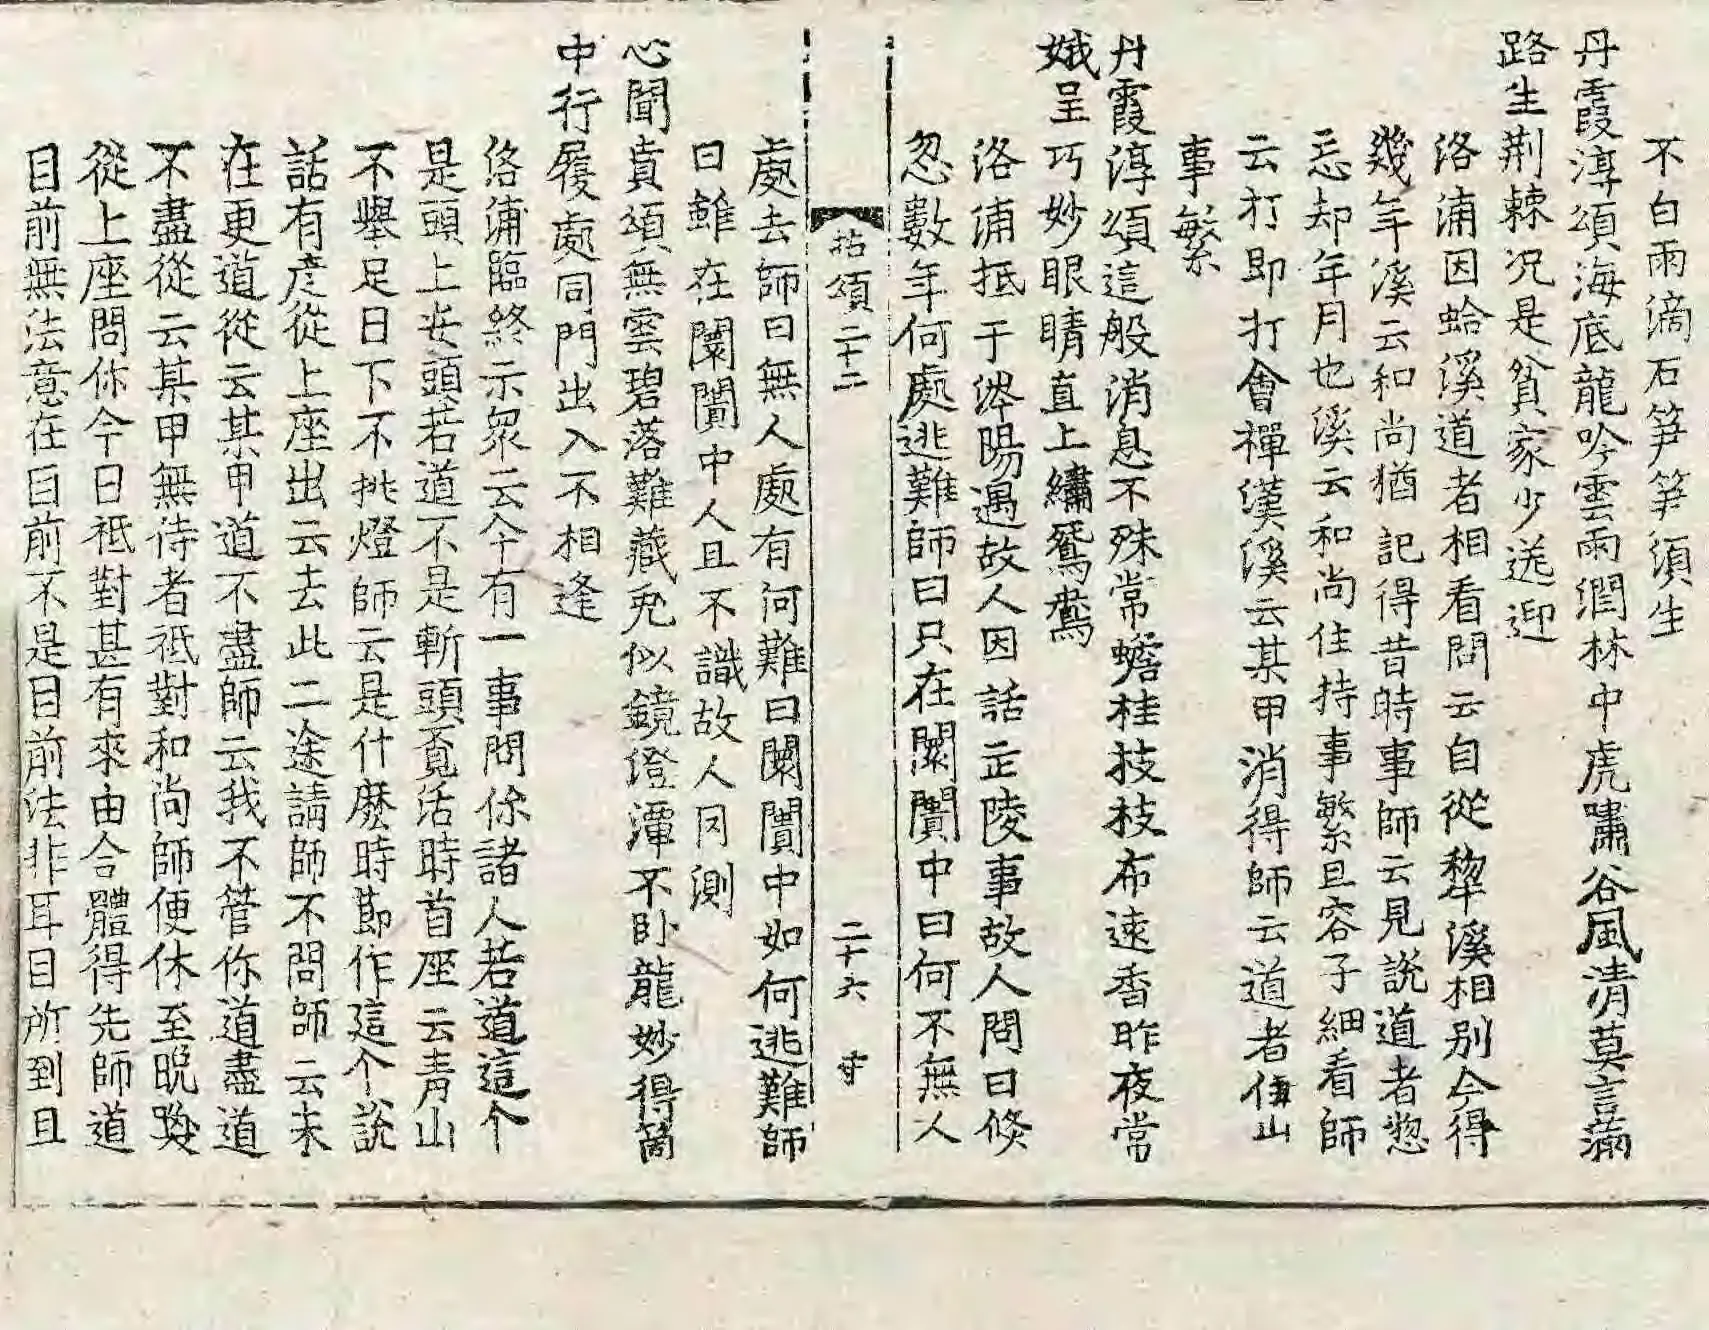 不白雨滴石笋笋須生
丹霞淳頌海底龍吟雲雨潤林中虎嘯谷風清莫言滿
路生荆棘况是貧家少送迎
洛浦因蛤溪道者相看問云自從犂溪相别今得
幾年溪云和尚猶記得昔時事師云見說道者惣
忘却年月也溪云和尚住持事繁且容子細看師
云打即打會禪漢溪云某甲消得師云道者住山
事繁
丹霞淳頌這般消息不殊常蟾桂技枝布逺香昨夜常
娥呈巧妙眼睛直上繡鴛鴦
洛浦抵于涔陽遇故人因話正陵事故人問曰倐
忽數年何處逃難師曰只在闤闠中曰何不無人
拈頌二十二 二十六
處去師曰無人處有何難曰闤闠中如何逃難師
曰雖在闤闠中人且不識故人罔測
心聞賁頌無雲碧落難藏兎似鏡澄潭不卧龍妙得箇
中行履處同門出入不相逢
洛浦臨終示衆云今有一事問你諸人若道這个
是頭上安頭若道不是斬頭覔活時首座云青山
不舉足日下不挑燈師云是什麽時節作這个說
話有彦從上座出云去此二途請師不問師云未
在更道從云某甲道不盡師云我不管你道盡道
不盡從云某甲無侍者祗對和尚師便休至晩喚
從上座問你今日祗對甚有來由合體得先師道
目前無法意在目前不是目前法非耳目所到且